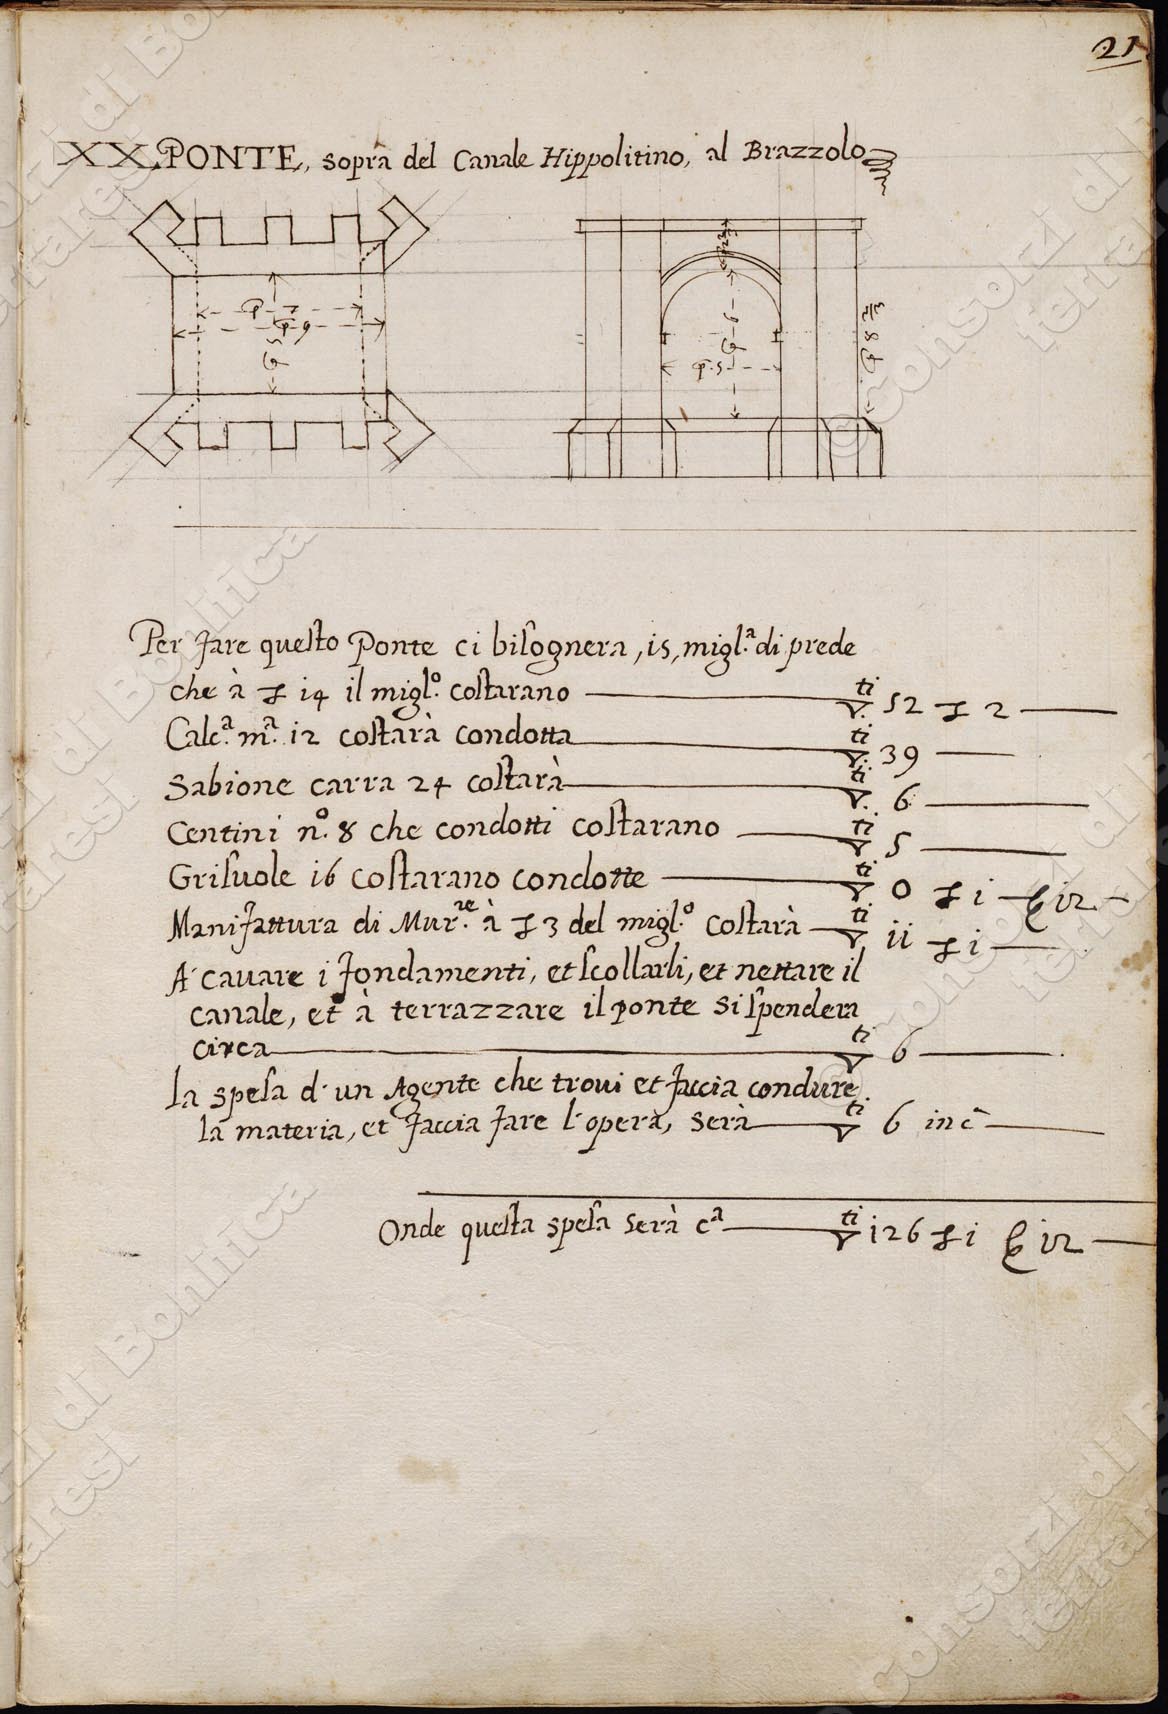 21
XX. PONTE, sopra del Canale Hippolitino, al Brazzolo
p. 7
p. 9
p. 5
p. 6
p. 5
p. 8 2/3
Per fare questo Ponte ci bisognera, 15, migl.ª di prede
che à £ 14 il migl.º costarano ▽ti 52 £ 2
Calc.ª m.ª 12 costarà condotta ▽ti 39
Sabione carra 24 costarà ▽ti 6
Centini n.º 8 che condotti costarano ▽ti 5
Grisuole 16 costarano condotte ▽ti 0 £ 1 ß 12
Manifattura di Mur.re à £ 3 del migl.º costarà ▽ti 11 £ 1
A cavare i fondamenti, et scollarli, et nettare il
canale, et à terrazzare il ponte si spendera
circa ▽ti 6
la spesa d'un Agente che trovi et faccia condure
la materia, et faccia fare l'opera, serà ▽ti 6 inc.ª
Onde questa spesa serà cª ▽ti 126 £ 1 ß 12
© Consorzi di Bonifica
ferraresi